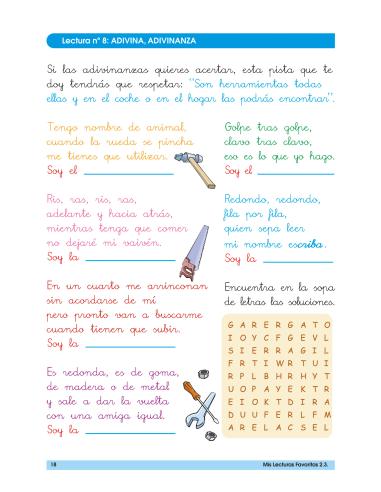 Lectura nº 8: ADIVINA, ADIVINANZA
Si las adivinanzas quieres acertar, esta pista que te
doy tendrás que respetar: “Son herramientas todas
ellas y en el coche o en el hogar las podrás encontrar”.
Tengo nombre de animal,
cuando la rueda se pincha
me tienes que utilizar.
Soy el
Golpe tras golpe,
clavo tras clavo,
eso es lo que yo hago.
Soy el
Ris, ras, ris, ras,
adelante y hacia atrás,
mientras tenga que comer
no dejaré mi vaivén.
Soy la
Redondo, redondo,
fila por fila,
quien sepa leer
mi nombre escriba.
Soy la
En un cuarto me arrinconan
sin acordarse de mí
pero pronto van a buscarme
cuando tienen que subir.
Soy la
Es redonda, es de goma,
de madera o de metal
y sale a dar la vuelta
con una amiga igual.
Soy la
Encuentra en la sopa
de letras las soluciones.
G A R E R G A T O
I O Y C F G E V L
S I E R R A G I L
F R T I W R T U I
R P L B H R H Y T
U O P A Y E K T R
E I O K T D I R A
D U U F E R L F M
A R E L A C S E L
18
Mis Lecturas Favoritas 2.3.